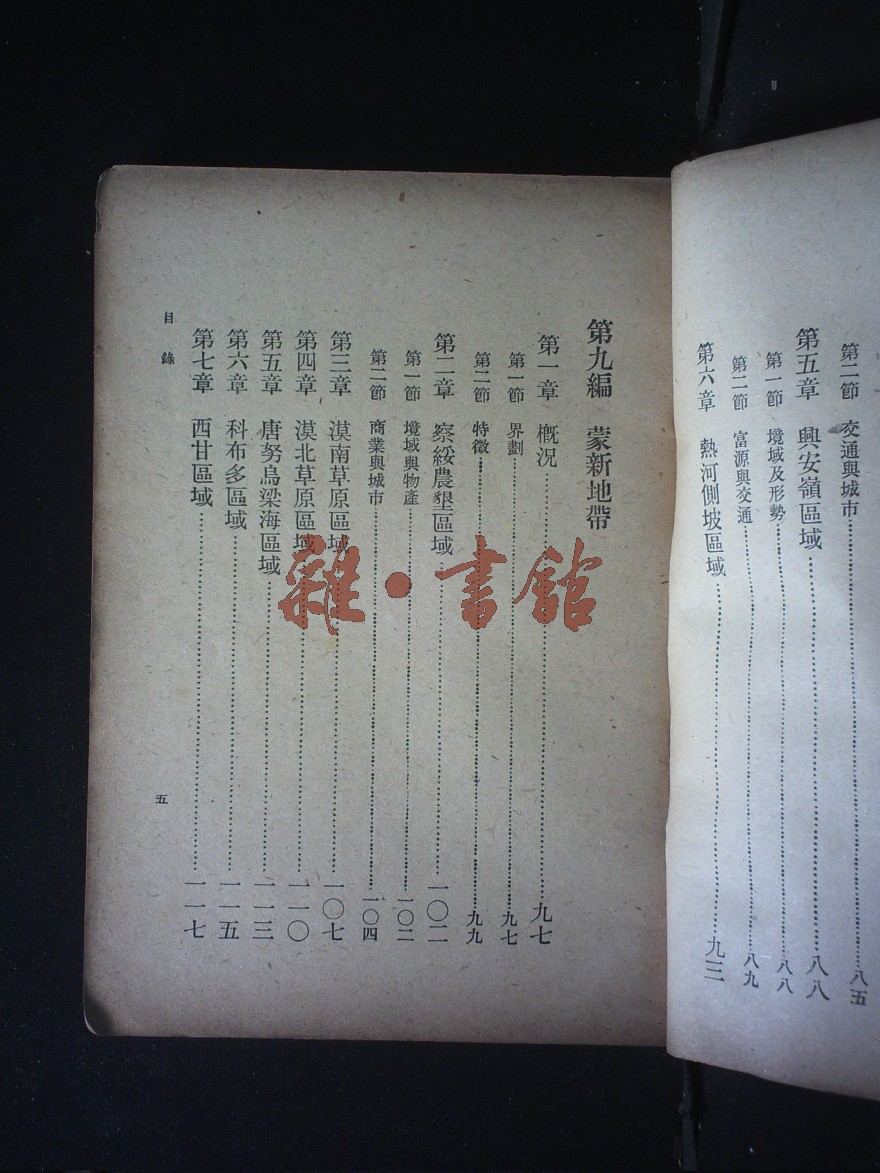 第二節 交通與城市……八五
第五章 興安嶺區域……八八
第一節 境域及形勢……八八
第二節 富源與交通……八九
第六章 熱河側坡區域……九三
第九編 蒙新地帶
第一章 概況……九七
第一節 界劃……九七
第二節 特徵……九九
第二章 察綏農墾區域……一〇二
第一節 境域與物產……一〇二
第二節 商業與城市……一〇四
第三章 漠南草原區域……一〇七
第四章 漠北草原區域……一一〇
第五章 唐努烏梁海區域……一一三
第六章 科布多區域……一一五
第七章 西甘區域……一一七
目錄
五
雜·書館